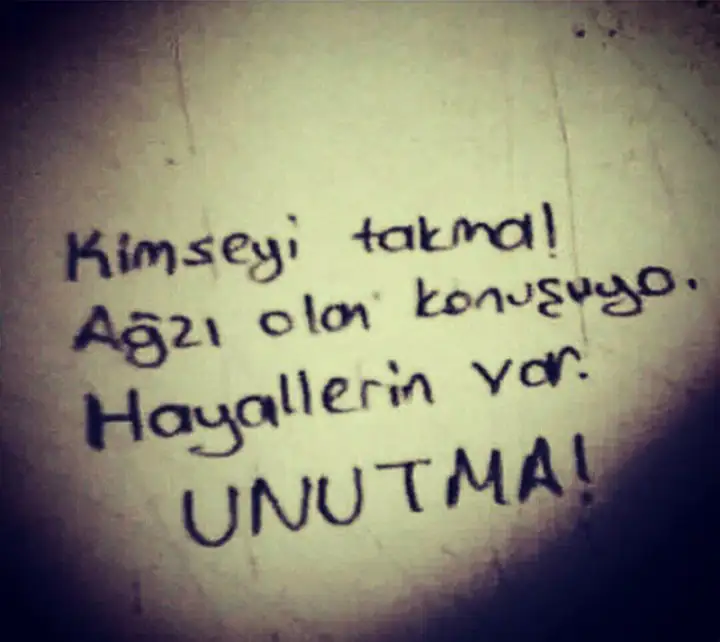 Kimseyi takma!
Ağzı olan konuşuyo.
Hayallerin var.
UNUTMA!